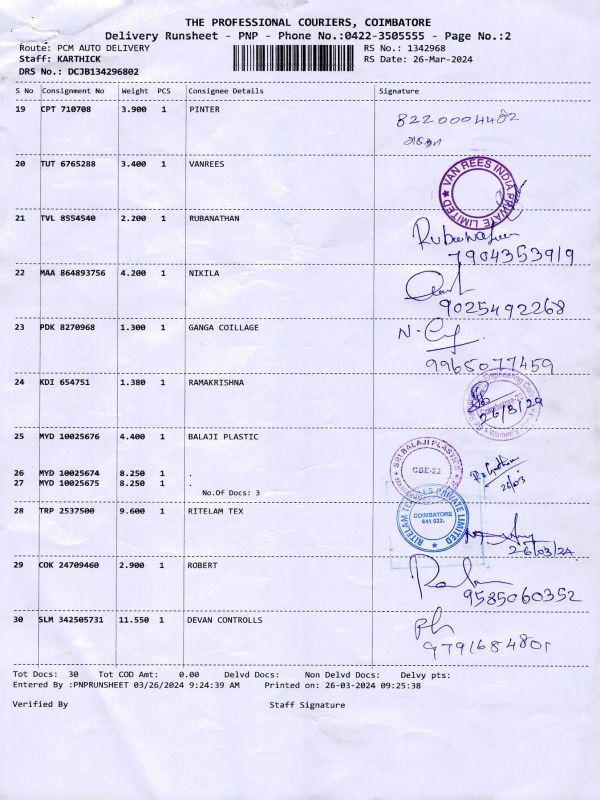 THE PROFESSIONAL COURIERS, COIMBATORE
Delivery Runsheet - PNP - Phone No.:0422-3505555 - Page No.:2
Route: PCM AUTO DELIVERY RS No.: 1342968
Staff: KARTHICK RS Date: 26-Mar-2024
DRS No.: DCJB134296802
S No Consignment No Weight PCS Consignee Details Signature
19 CPT 710708 3.900 1 PINTER
8220004482
20 TUT 6765288 3.400 1 VANREES
VAN REES INDIA PRIVATE LIMITED ★
21 TVL 8554540 2.200 1 RUBANATHAN
7904353919
22 MAA 864893756 4.200 1 NIKILA
9025492268
23 PDK 8270968 1.300 1 GANGA COILLAGE
9965077459
24 KDI 654751 1.380 1 RAMAKRISHNA
Engineering
Women's
25 MYD 10025676 4.400 1 BALAJI PLASTIC
SRI BALAJI PLASTICS
CBE-22
26 MYD 10025674 8.250 1 .
27 MYD 10025675 8.250 1 .
26/03
No.Of Docs: 3
28 TRP 2537500 9.600 1 RITELAM TEX
RITELAM TEXILES PRIVATE LIMITED ★
COIMBATORE
641 022.
26/03/24
29 COK 24709460 2.900 1 ROBERT
9585060352
30 SLM 342505731 11.550 1 DEVAN CONTROLLS
9791684801
Tot Docs: 30 Tot COD Amt: 0.00 Delvd Docs: Non Delvd Docs: Delvy pts:
Entered By :PNPRUNSHEET 03/26/2024 9:24:39 AM Printed on: 26-03-2024 09:25:38
Verified By Staff Signature